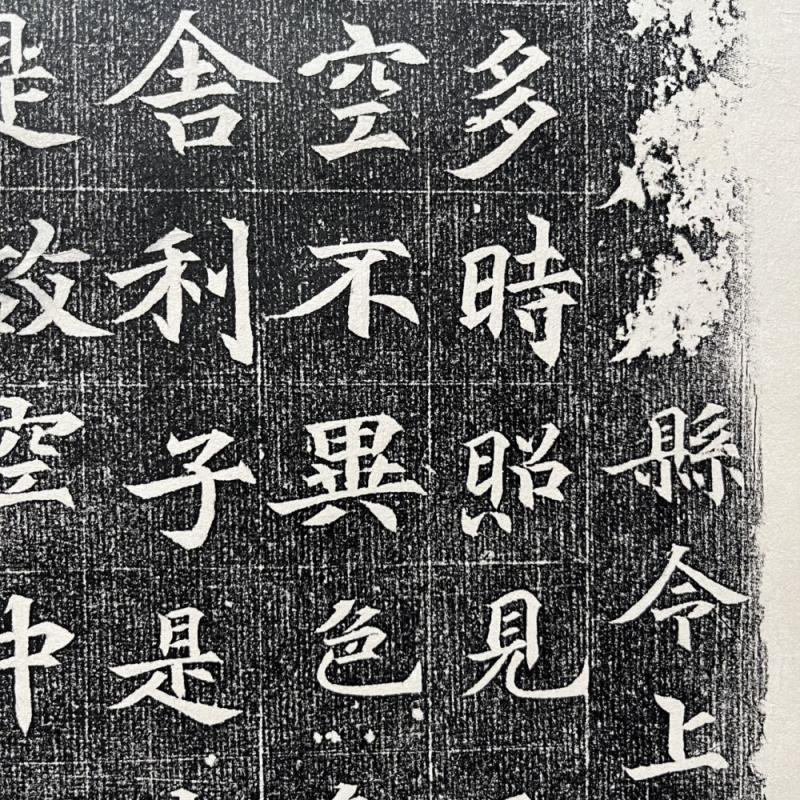 縣令上
多時照見
空不異色
舍利子是
是故空中